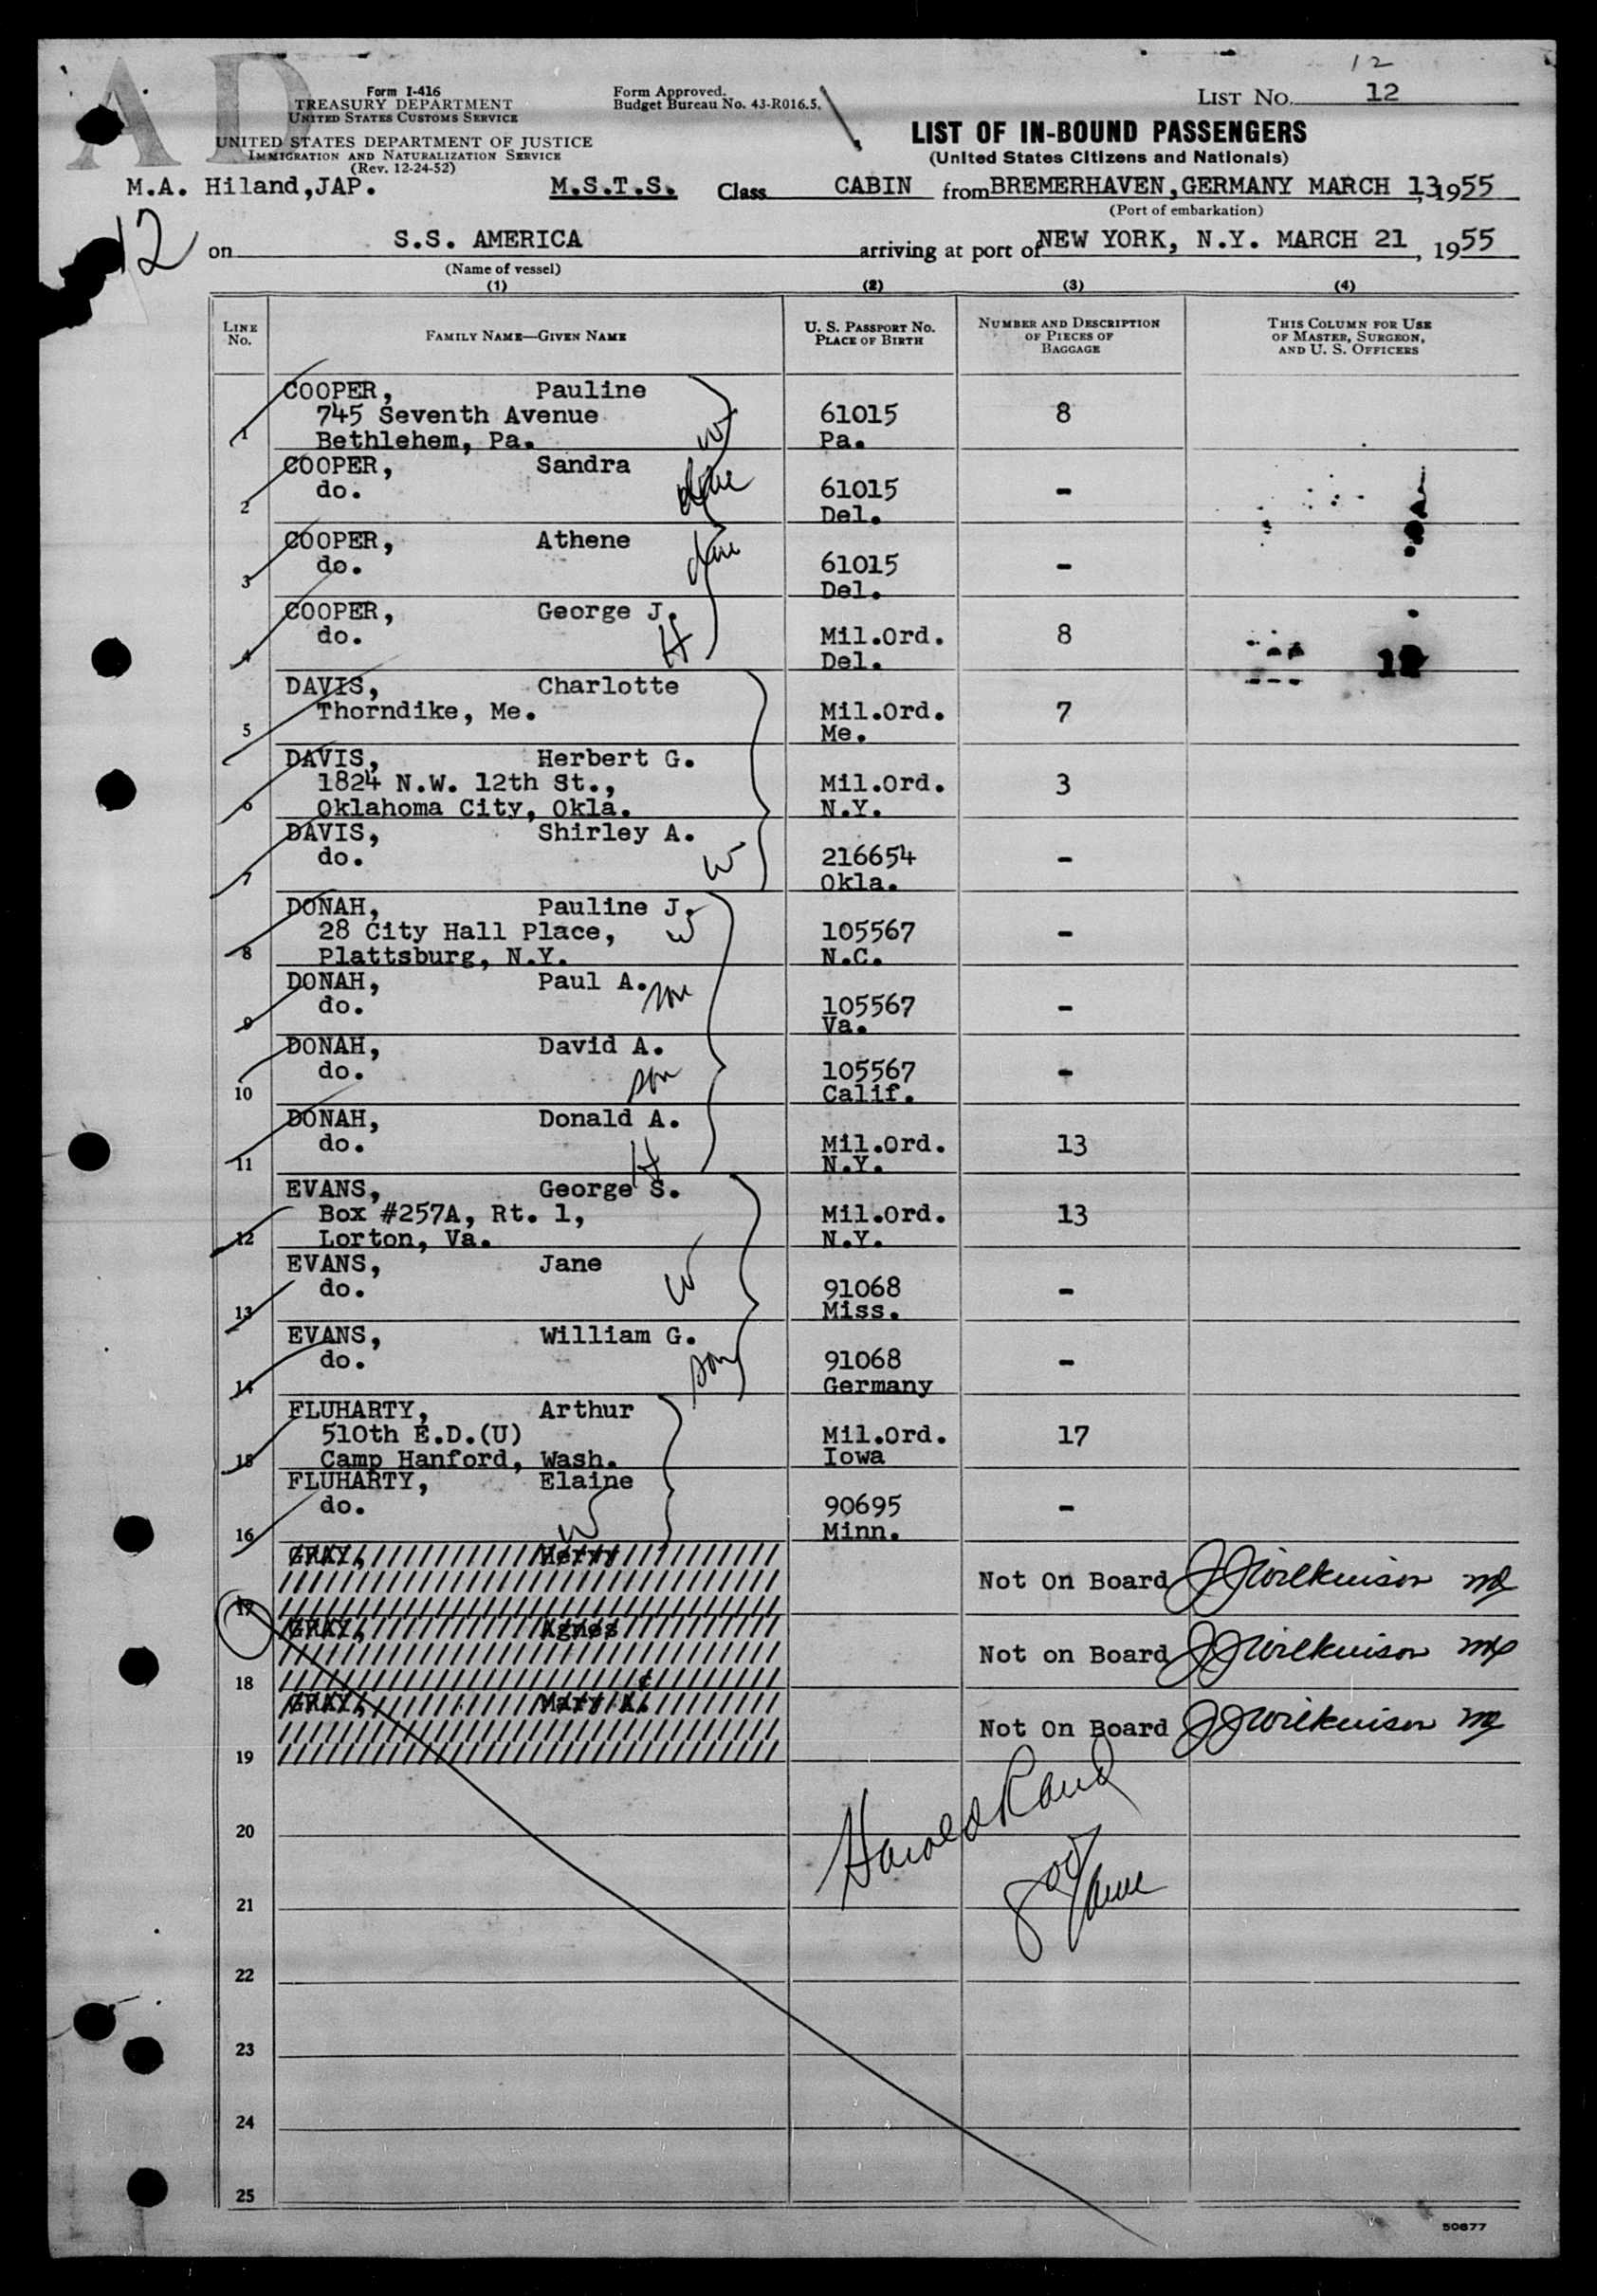 AD
12
Form I-416
TREASURY DEPARTMENT
UNITED STATES CUSTOMS SERVICE
UNITED STATES DEPARTMENT OF JUSTICE
IMMIGRATION AND NATURALIZATION SERVICE
(Rev. 12-24-52)
Form Approved.
Budget Bureau No. 43-R016.5.
LIST No. 12
LIST OF IN-BOUND PASSENGERS
(United States Citizens and Nationals)
M.A. Hiland,JAP. M.S.T.S. Class CABIN from BREMERHAVEN,GERMANY MARCH 13, 1955
(Port of embarkation)
12
on S.S. AMERICA arriving at port of NEW YORK, N.Y. MARCH 21, 1955
(Name of vessel)
(1) (2) (3) (4)
LINE No. FAMILY NAME—GIVEN NAME U. S. PASSPORT No. PLACE OF BIRTH NUMBER AND DESCRIPTION OF PIECES OF BAGGAGE THIS COLUMN FOR USE OF MASTER, SURGEON, AND U. S. OFFICERS
COOPER, Pauline
745 Seventh Avenue 61015 8
1 Bethlehem, Pa. W Pa.
COOPER, Sandra
do. 61015 -
2 Del.
COOPER, Athene
do. 61015 -
3 Del.
COOPER, George J.
do. H Mil.Ord. 8
4 Del. 12
DAVIS, Charlotte
Thorndike, Me. Mil.Ord. 7
5 Me.
DAVIS, Herbert G.
1824 N.W. 12th St., Mil.Ord. 3
6 Oklahoma City, Okla. N.Y.
DAVIS, Shirley A.
do. W 216654 -
7 Okla.
DONAH, Pauline J.
28 City Hall Place, W 105567 -
8 Plattsburg, N.Y. N.C.
DONAH, Paul A. son
do. 105567 -
9 Va.
DONAH, David A.
do. son 105567 -
10 Calif.
DONAH, Donald A.
do. H Mil.Ord. 13
11 N.Y.
EVANS, George S.
Box #257A, Rt. 1, Mil.Ord. 13
12 Lorton, Va. N.Y.
EVANS, Jane
do. W 91068 -
13 Miss.
EVANS, William G.
do. son 91068 -
14 Germany
FLUHARTY, Arthur
510th E.D.(U) Mil.Ord. 17
15 Camp Hanford, Wash. Iowa
FLUHARTY, Elaine
do. W 90695 -
16 Minn.
GRAY,
17 Not On Board JJWilkinson
GRAY, Agnes
18 Not on Board JJWilkinson
GRAY, Mary A.
19 Not On Board JJWilkinson
20
Harold Rand
21
22
23
24
25
50877